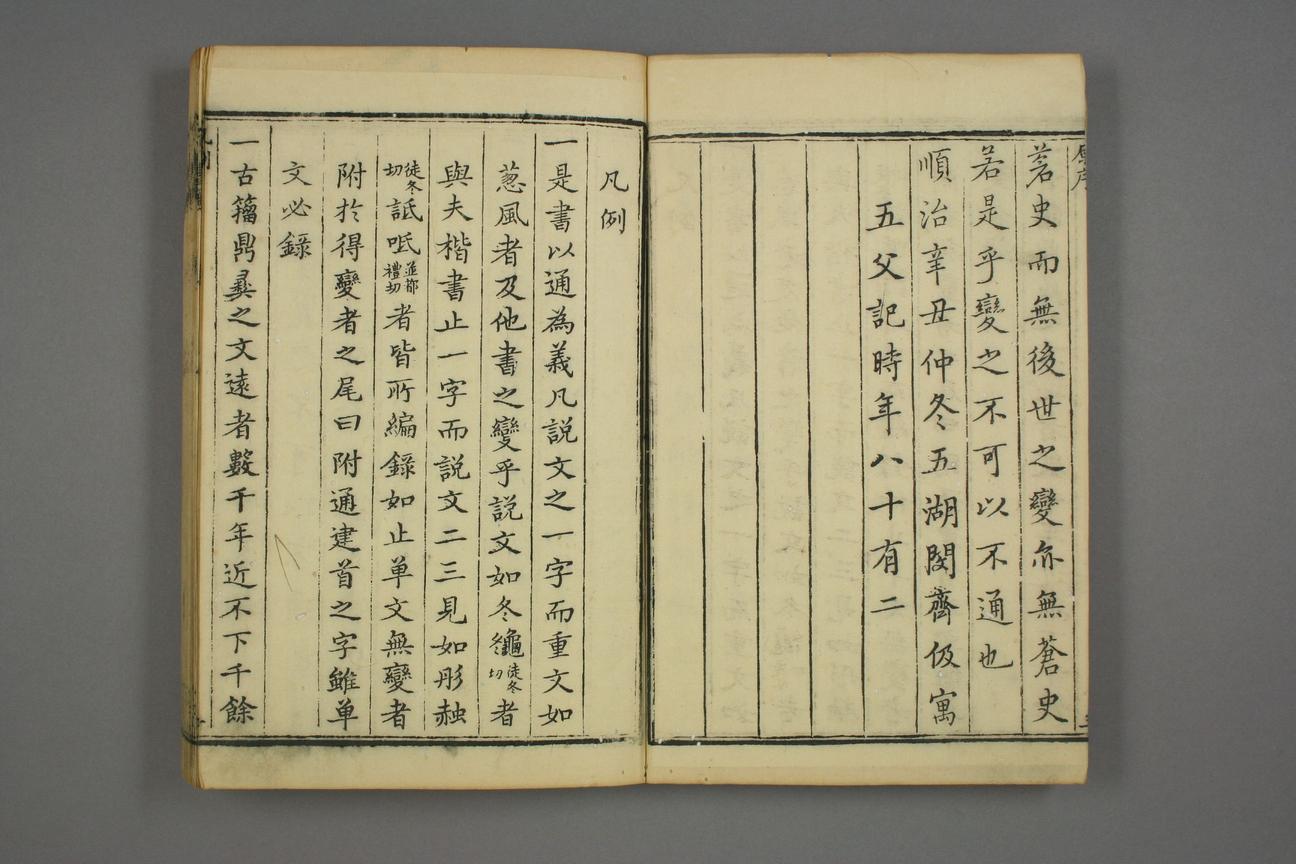 蒼史而無後世之變亦無蒼史
若是乎變之不可以不通也
順治辛丑仲冬五湖閔齊伋寓
五父記時年八十有二
凡例
一是書以通為義凡説文之一字而重文如
蔥風者及他書之變乎説文如冬𪚰徒冬切者
與夫楷書止一字而説文二三見如彤赨
徒冬切詆呧並都禮切者皆所編錄如止単文無變者
附於得變者之尾曰附通建首之字雖単
文必錄
一古籀鼎彝之文遠者數千年近不下千餘